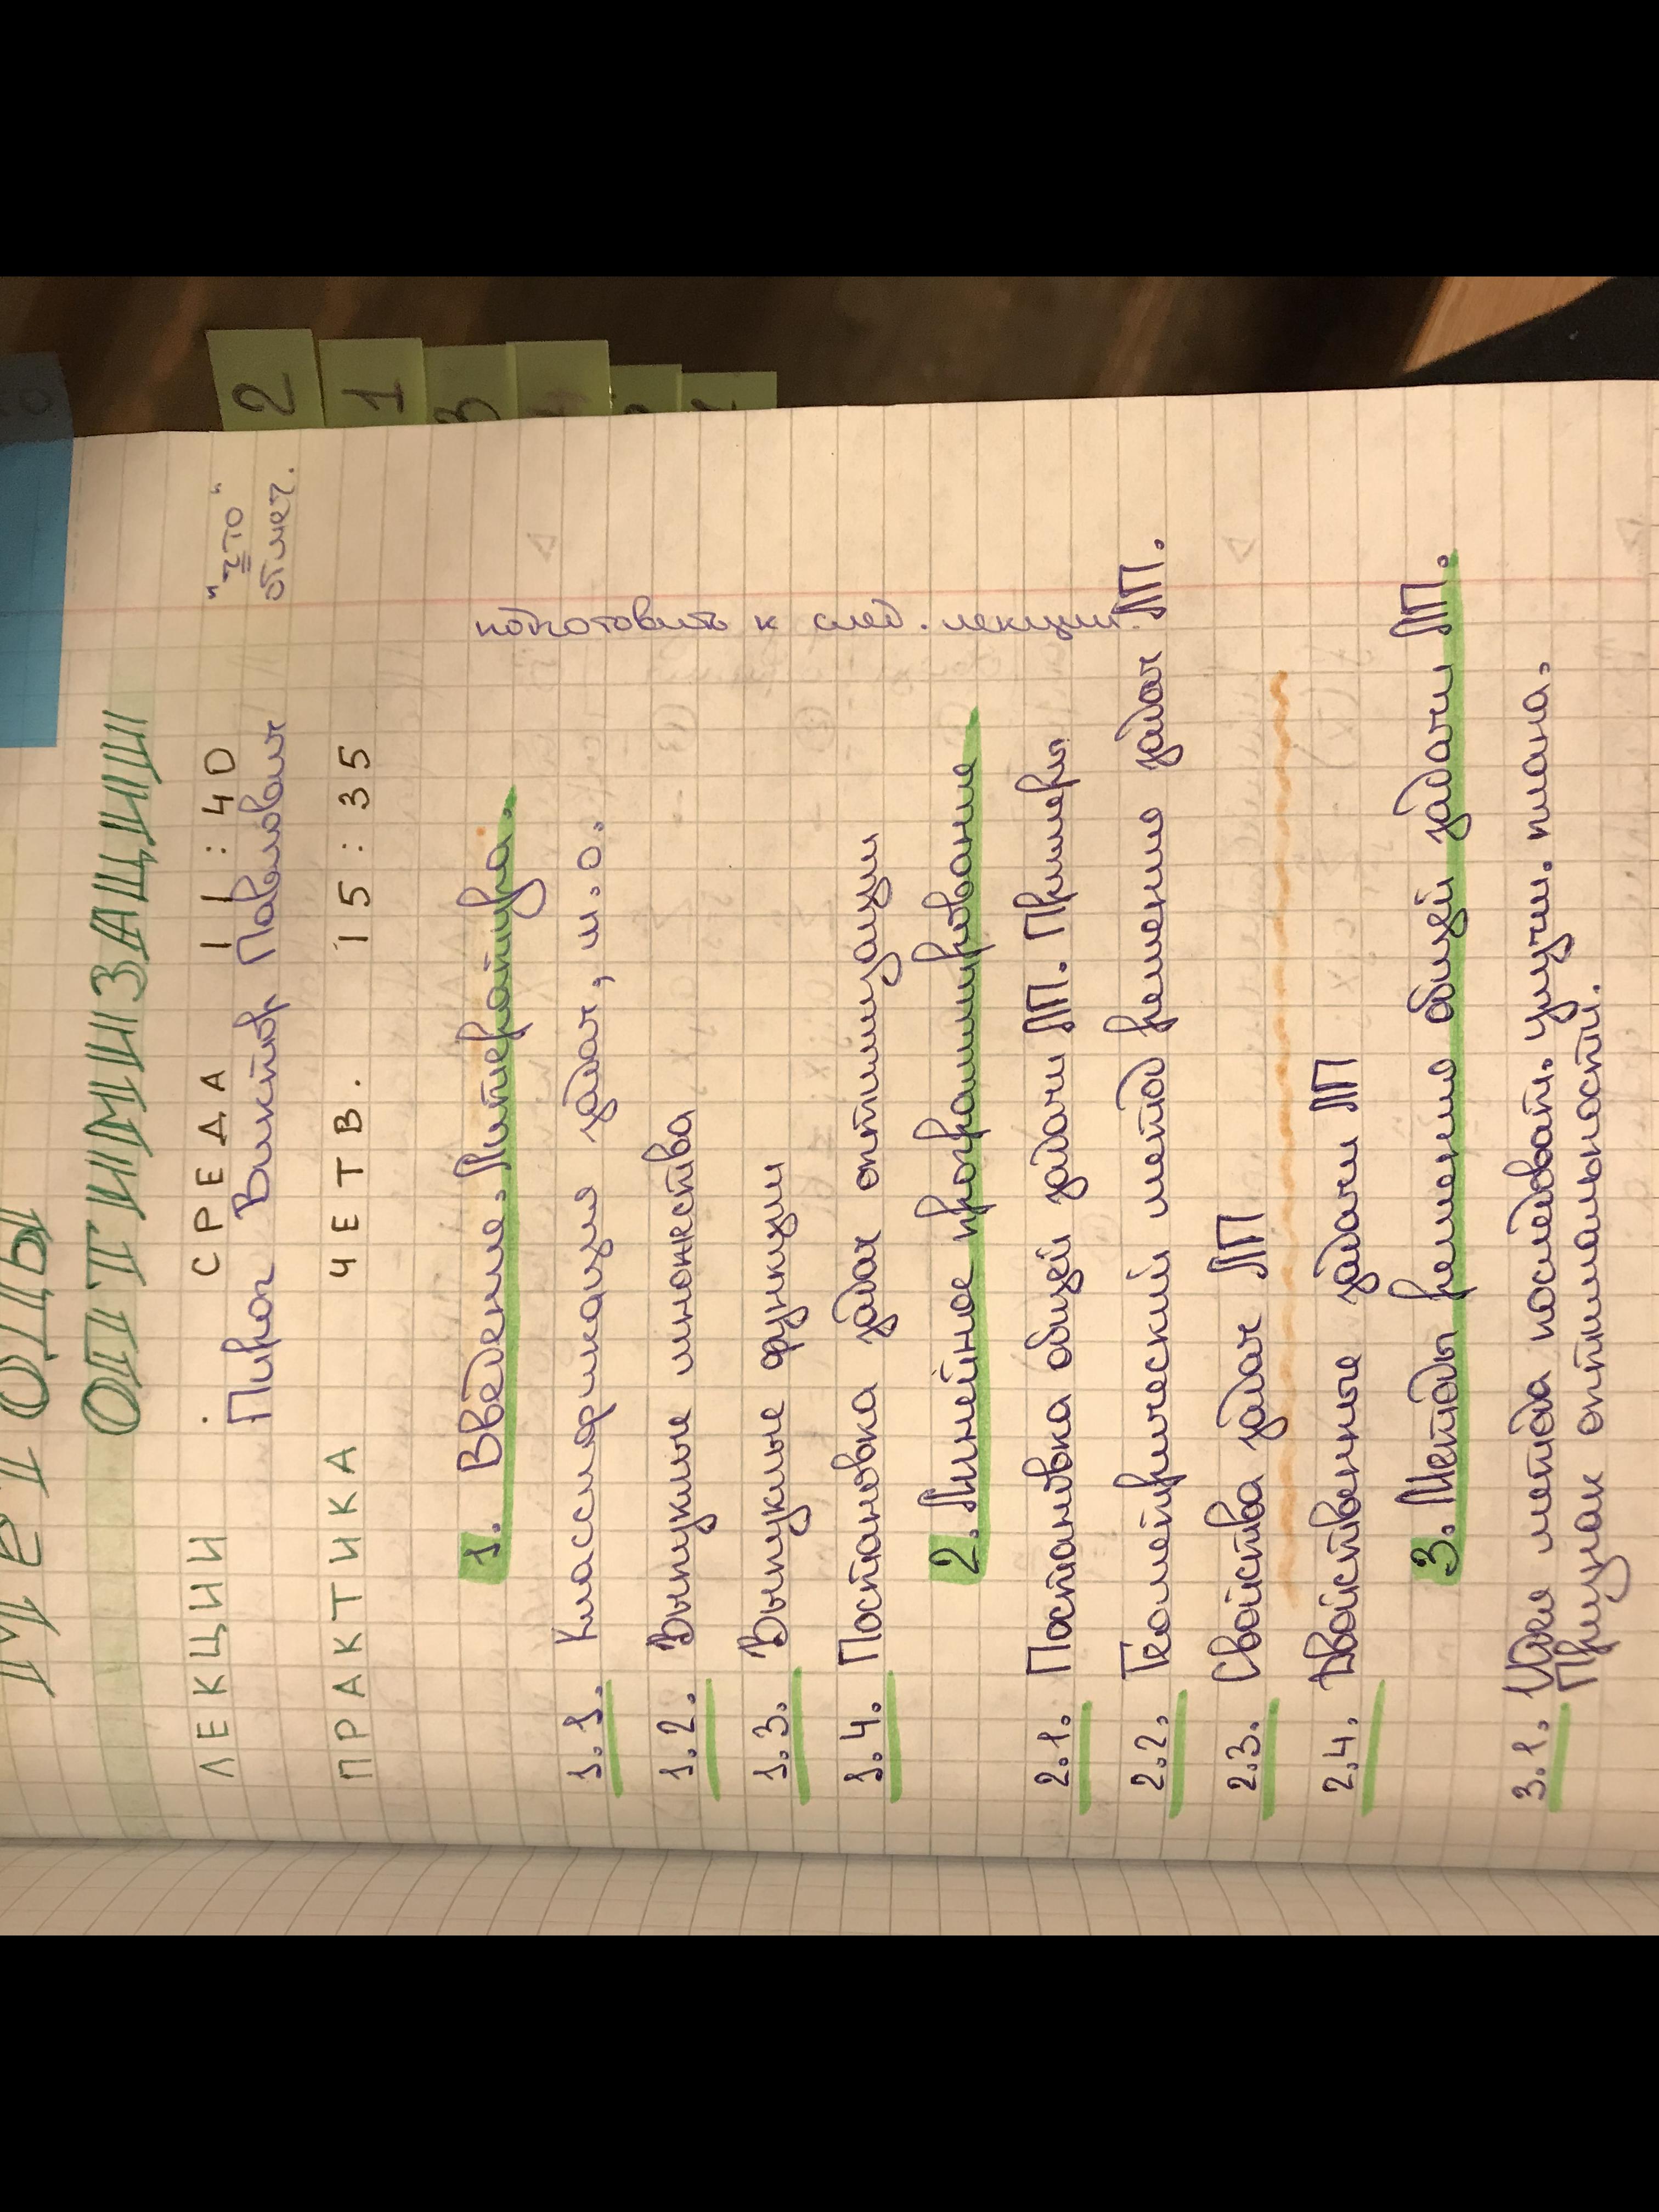 МЕТОДЫ
ОПТИМИЗАЦИИ
ЛЕКЦИИ . СРЕДА 11:40
"что"
отмеч.
Пирог Виктор Павлович
ПРАКТИКА ЧЕТВ. 15:35
1. Введение. Литература.
1.1. Классификация задач, м.о.
1.2. Выпуклые множества
1.3. Выпуклые функции
1.4. Постановка задач оптимизации
подготовить к след. лекции.
2. Линейное программирование
2.1. Постановка общей задачи ЛП. Примеры
2.2. Геометрический метод решения задач ЛП.
2.3. Свойства задач ЛП
2.4. Двойственные задачи ЛП
3. Методы решения общей задачи ЛП.
3.1. Идея метода последоват. улучш. плана.
Признак оптимальности.
2
1
3